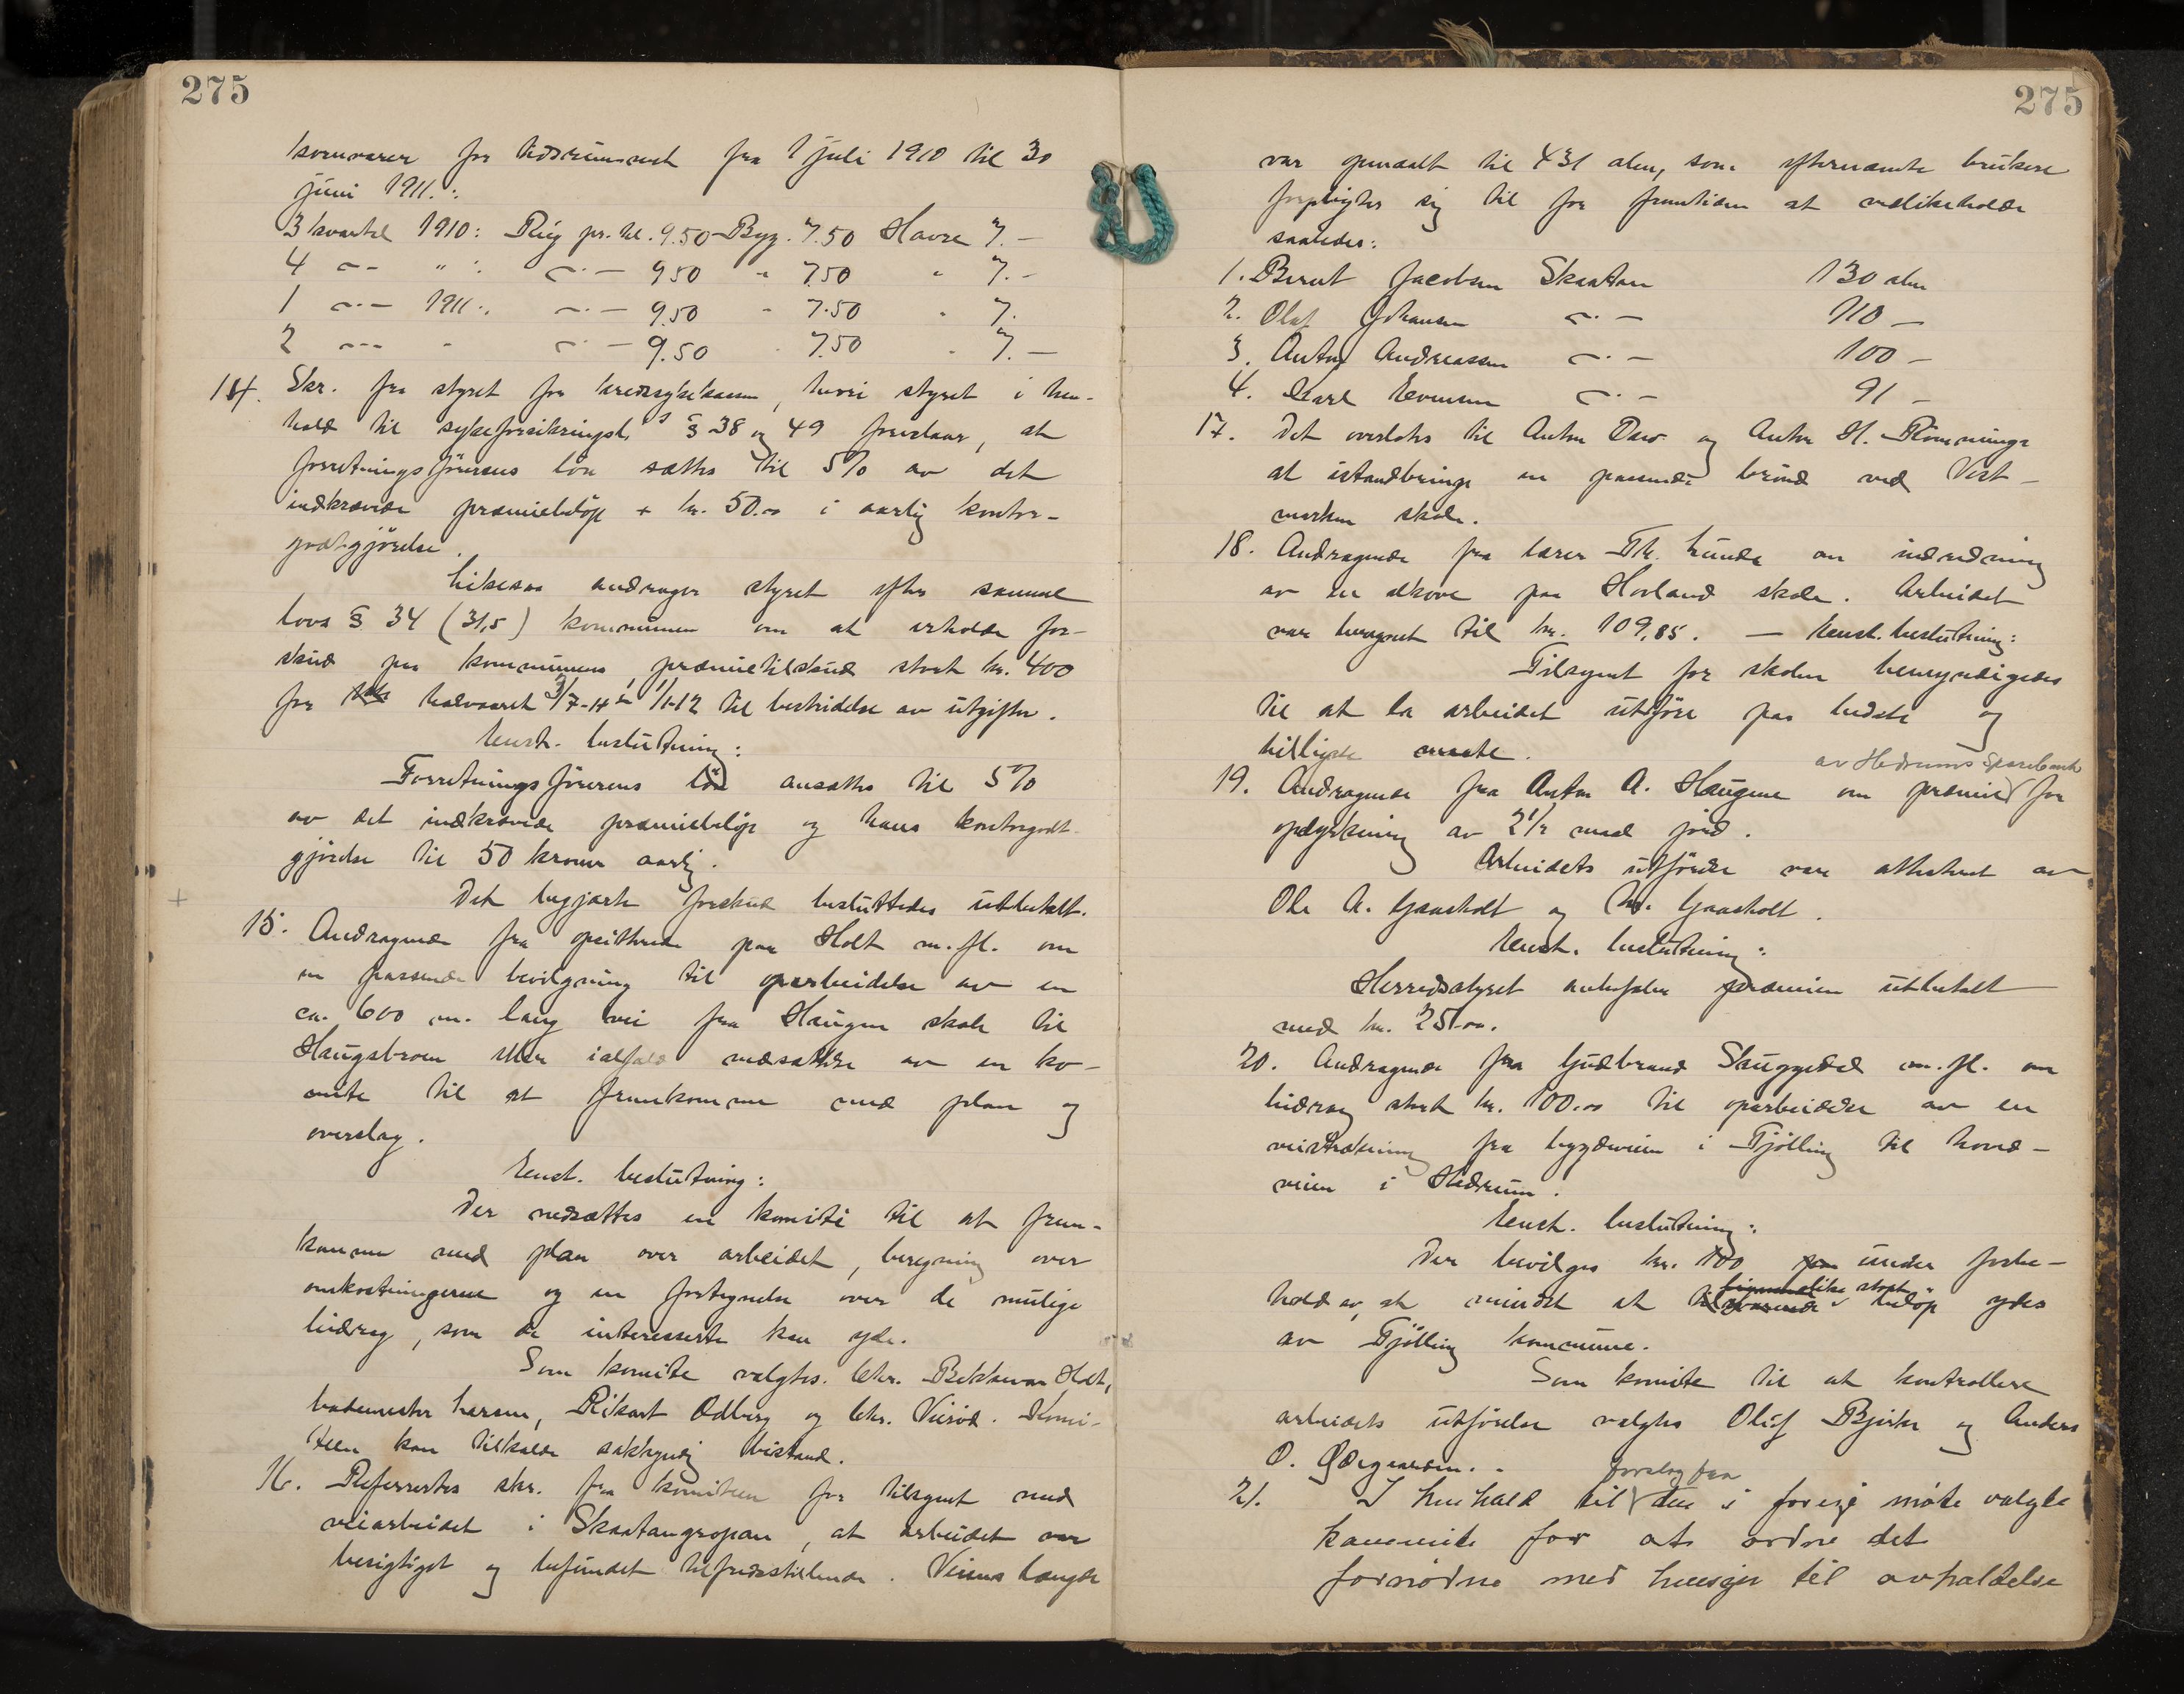 275
kornvarer for tidsrummet fra 1 juli 1910 til 30
juni 1911.:
3 kvartal 1910: Rug pr. hl. 9.50 - Byg. 7.50 Havre 7.-
4 -"- " : -"- 9.50 " 7.50 " 7.-
1 -"- 1911: -"- 9.50 - 7.50 " 7.
2 -"- " -"- 9.50 " 7.50 " 7.-
14. Skr. fra styret for kredssykekassen, hvori styret i hen-
hold til sykeforsikringsl.s § 38 og 49 foreslaar, at
forretningsförerens lön sættes til 5% av det
indkrævede præmiebelöp + kr. 50.00 i aarlig kontor-
godtgjörelse.
Likesaa andrager styret efter samme
lovs § 34 (31,5) kommunen om at erholde for-
skud paa kommunens præmietilskud stort kr. 400
for halvaaret 3/7-11 - 1/1-12 til bestridelse av utgifter.
Enst. beslutning:
Forretningsförerens lön ansættes til 5%
av det indkrævede præmiebelöp og hans kontorgodt-
gjörelse til 50 kroner aarlig.
Det begjærte forskud besluttedes utbetalt.
15. Andragende fra opsittere paa Holt m.fl. om
en passende bevilgning til oparbeidelse av en
ca. 600 m. lang vei fra Haugen skole til
Haugsbroen eller ialfald nedsættelse av en ko-
mite til at fremkomme med plan og
overslag.
Enst. beslutning:
Der nedsættes en komité til at frem-
komme med plan over arbeidet, beregning over
omkostningerne og en fortegnelse over de mulige
bidrag, som de interesserte kan yde.
Som komite valgtes. lehr. Bekkevar Holt,
bademester Larsen, Rikart Odberg og lehr. Virød. Komi-
teen kan tilkalde sakkyndig bistand.
16. Referertes skr. fra komiteen for tilsynet med
veiarbeidet i Skaatangropan, at arbeidet var
besigtiget og befundet tilfredsstillende. Veiens længde
275
var opmaalt til 431 alen, som efternævnte brukere
forpligter sig til for fremtiden at vedlikeholde
saaledes:
1. Berut Jacobsen Skaatan 130 alen
2. Olaf Johansen -"- 110 -
3. Anton Andreassen -"- 100 -
4. Karl Evensen -"- 91 -
17. Det overlotes til Anton og Anton H. Rimminge
at istandbringe en passende brönd ved Vest-
marken skole.
18. Andragende fra lærer Th. Lunde om indredning
av en alkove paa Hovland skole. Arbeidet
var beregnet til kr. 109,85. — Enst. beslutning:
Tilsynet for skolen bemyndigedes
til at la arbeidet utföre paa bedste og
billigste maate.
av Hedrums Sparebank
19. Andragende fra Anton A. Haugene om præmie for
opdyrkning av 2 1/2 maal jord.
Arbeidets utförelse var attestert av
Ole A. Gaasholt og Chr. Gaasholt.
Enst. beslutning:
Herredsstyret anbefaler præmien utbetalt
med kr. 25.00.
20. Andragende fra Gudbrand Skuggedal m.fl. om
bidrag stort kr. 100.00 til oparbeidelse av en
veistrækning fra bygdeveien i Tjölling til hoved-
veien i Hedrum.
Enst. beslutning:
Der bevilges kr. 100 under forbe-
hold av, at mindst et
likesaa stort
belöp ydes
av Tjölling kommune.
Som komite til at kontrollere
arbeidets utförelse valgtes Oluf Bjerke og Anders
O. Jörgensen.
forslag fra
21. I henhold til den i forrige möte valgte
kommite for at ordne det
fornødne med hensyn til avholdelse